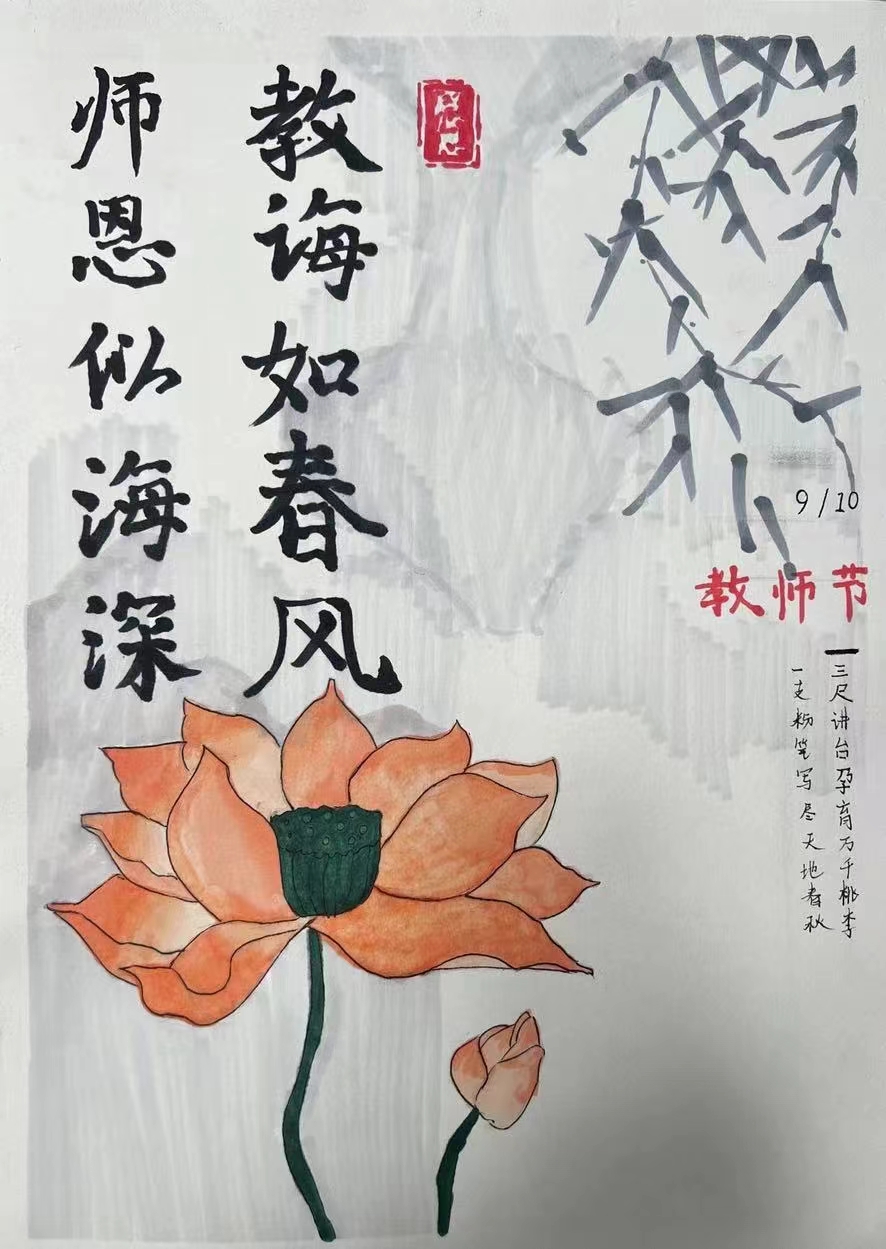 教诲如春风
师恩似海深
9/10
教师节
三尺讲台孕育万千桃李
一支粉笔写尽天地春秋